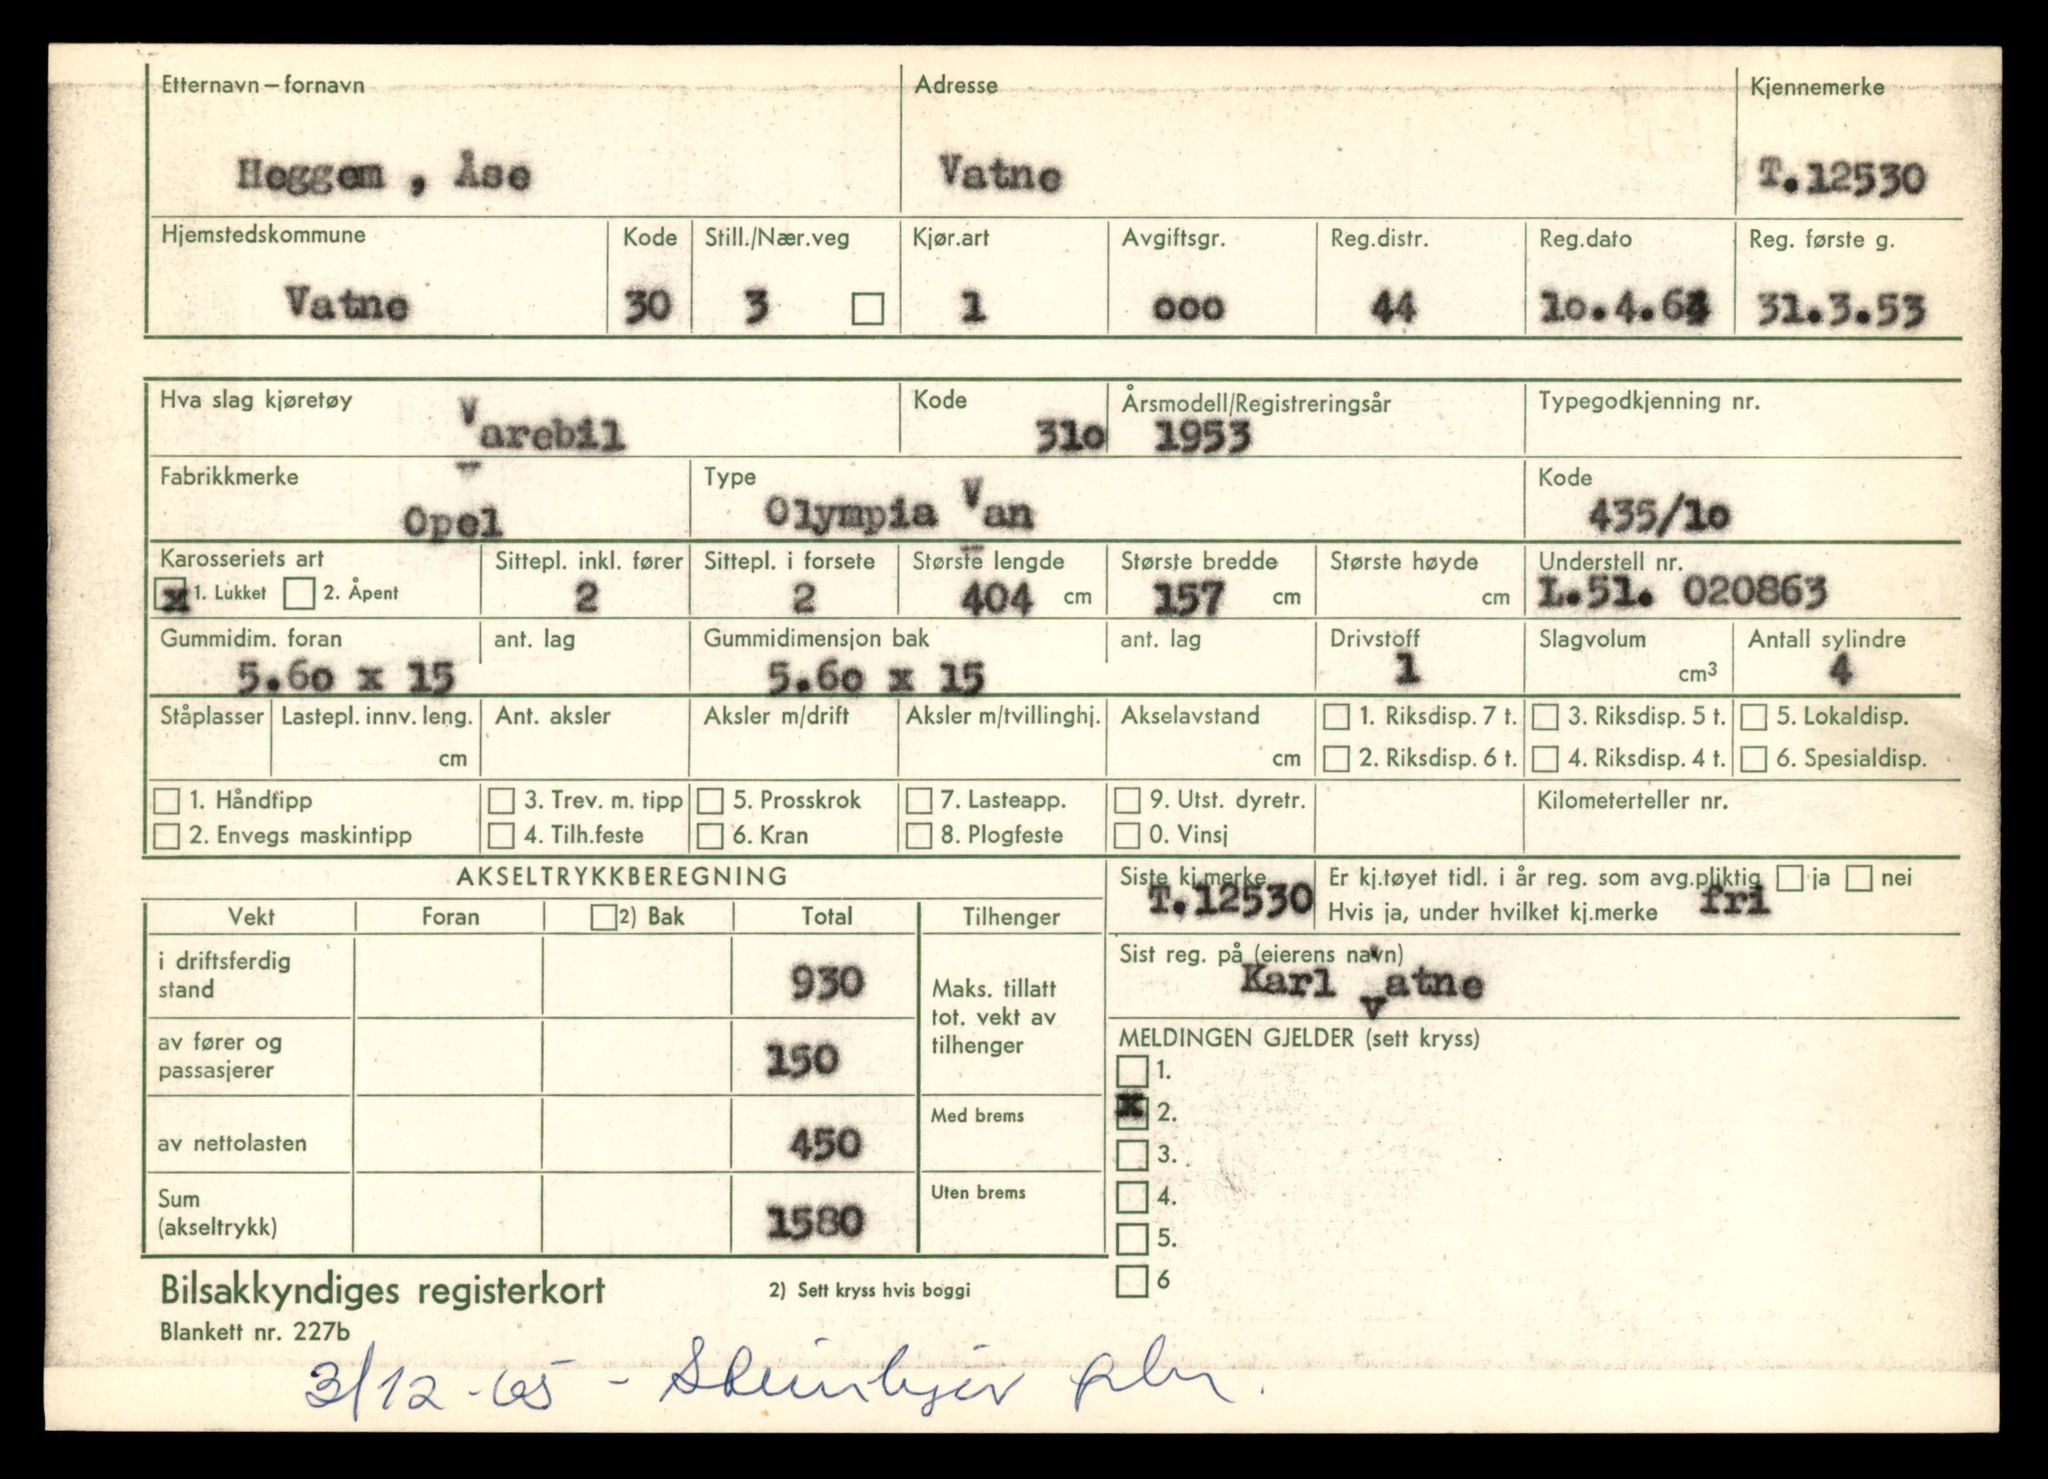 Etternavn – fornavn Adresse Kjennemerke
Heggem , Åse Vatne T.12530
Hjemstedskommune Kode Still./Nær.veg Kjør.art Avgiftsgr. Reg.distr. Reg.dato Reg. første g.
Vatne 30 3 1 ooo 44 1o.4.64 31.3.53
Hva slag kjøretøy Kode Årsmodell/Registreringsår Typegodkjenning nr.
Varebil 31o 1953
Fabrikkmerke Type Kode
Opel Olympia Van 435/1o
Karosseriets art Sittepl. inkl. fører Sittepl. i forsete Største lengde Største bredde Største høyde Understell nr.
x 1. Lukket 2. Åpent 2 2 404 cm 157 cm cm L.51. 020863
Gummidim. foran ant. lag Gummidimensjon bak ant. lag Drivstoff Slagvolum Antall sylindre
5.6o x 15 5.6o x 15 1 cm3 4
Ståplasser Lastepl. innv. leng. Ant. aksler Aksler m/drift Aksler m/tvillinghj. Akselavstand 1. Riksdisp. 7 t. 3. Riksdisp. 5 t. 5. Lokaldisp.
cm cm 2. Riksdisp. 6 t. 4. Riksdisp. 4 t. 6. Spesialdisp.
1. Håndtipp 3. Trev. m. tipp 5. Prosskrok 7. Lasteapp. 9. Utst. dyretr. Kilometerteller nr.
2. Envegs maskintipp 4. Tilh.feste 6. Kran 8. Plogfeste 0. Vinsj
AKSELTRYKKBEREGNING Siste kj.merke Er kj.tøyet tidl. i år reg. som avg.pliktig ja nei
T.12530 Hvis ja, under hvilket kj.merke fri
Vekt Foran 2) Bak Total Tilhenger
Sist reg. på (eierens navn)
Karl Vatne
i driftsferdig
stand 930
Maks. tillatt
tot. vekt av
tilhenger
av fører og
passasjerer 150
MELDINGEN GJELDER (sett kryss)
1.
x 2.
3.
4.
5.
6
av nettolasten 450 Med brems
Sum
(akseltrykk) 1580 Uten brems
Bilsakkyndiges registerkort 2) Sett kryss hvis boggi
Blankett nr. 227b
3/12-65 -